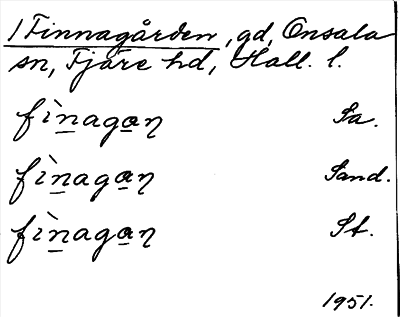 1 Finnagården, gd, Onsala
sn, Fjäre hd, Hall. l.
fìnagaŋ Sa.
fìnagaŋ Sand.
fìnagaŋ St.
1951.